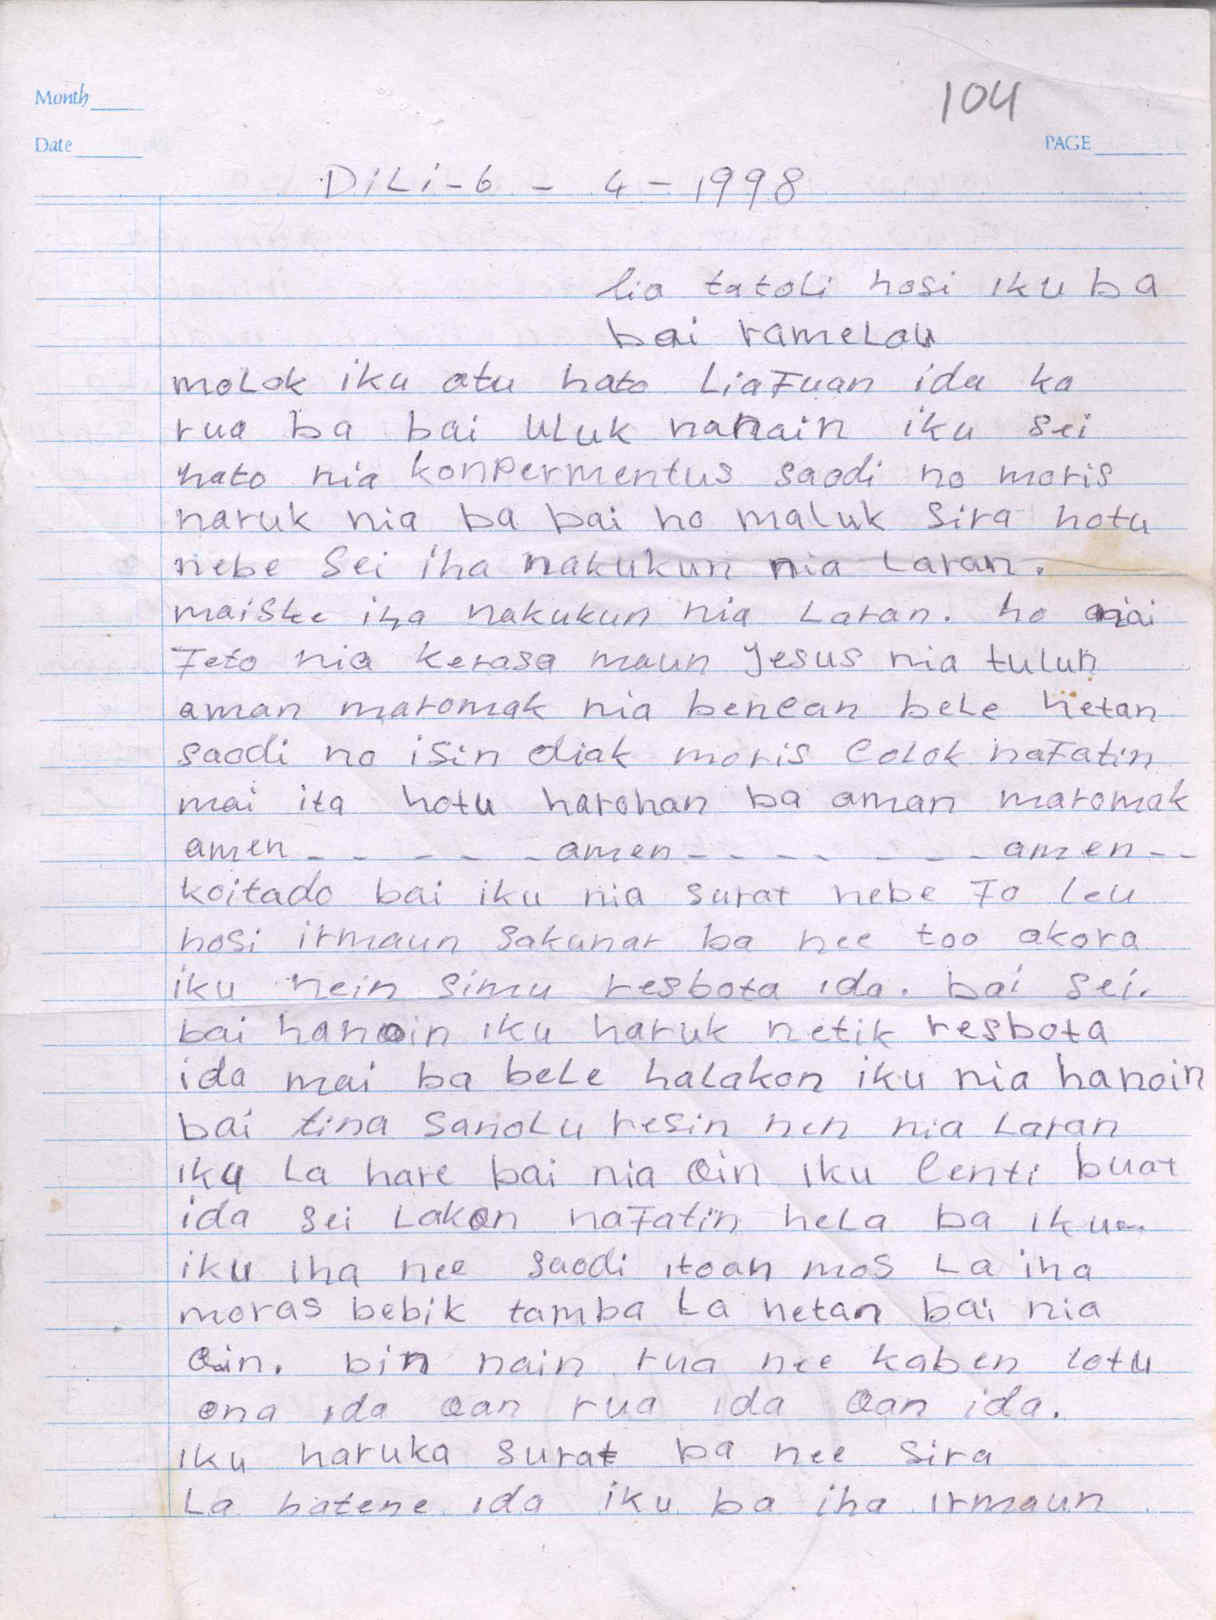 104
Month
Date
PAGE
DiLi-6 - 4-1998
lia tatoli hosi iku ba
bai ramelau
molok iku atu hato LiaFuan ida ka
rua ba bai uluk nanain iku sei
hato nia konpermentus saodi no moris
naruk nia ba bai ho maluk sira hotu
nebe sei iha nakukun nia Laran.
maiske iha nakukun nia Laran. ho
Feto nia kerasa maun Jesus nia tulun
aman maromak nia benean bele hetan
saodi no isin diak moris Colok naFatin
mai ita hotu harohan ba aman maromak
amen - - - - - amen - - - - - - - amen - -
koitado bai iku nia surat nebe Fo leu
hosi irmaun sakunar ba nee too akora
iku hein simu resbota ida. bai sei.
bai hanoin iku haruk netik resbota
ida mai ba bele halakon iku nia hanoin
bai tina sanolu resin nen nia Laran
iku La hare bai nia Oin iku Centi buat
ida sei Lakon naFatin hela ba iku
iku iha nee saodi itoan mos La iha
moras bebik tamba La hetan bai nia
Oin. bin nain rua nee kaben lotu
ona ida Oan rua ida Oan ida.
iku haruka surat ba nee sira
La hatene ida iku ba iha irmaun